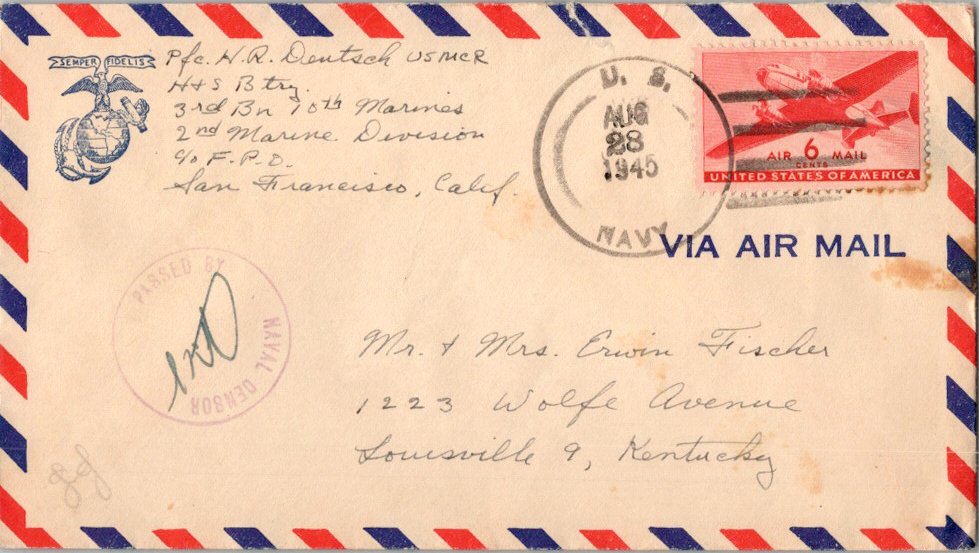 SEMPER FIDELIS
Pfc. H. R. Deutsch USMCR
H+S Btry
3rd Bn 10th Marines
2nd Marine Division
c/o F.P.O.
San Francisco, Calif.
U. S.
AUG
28
1945
NAVY
AIR 6 MAIL
CENTS
UNITED STATES OF AMERICA
VIA AIR MAIL
PASSED BY
NAVAL CENSOR
Mr. + Mrs. Erwin Fischer
1223 Wolfe Avenue
Louisville 9, Kentucky